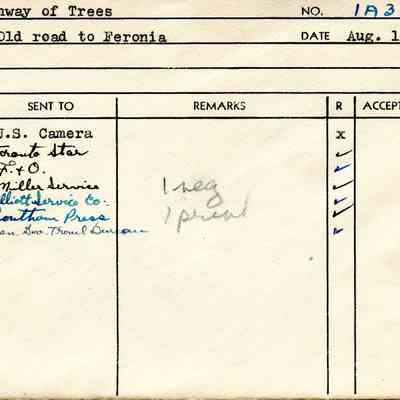 nway of Trees NO. 1A3
Old road to Feronia DATE Aug. 1
SENT TO REMARKS R ACCEPT
U.S. Camera X
oronto Star ✓
F. & O. ✓
Miller Service ✓ 1 neg
lliott Service Co. ✓
Southam Press ✓ 1 print
an Gov. Travel Bureau ✓